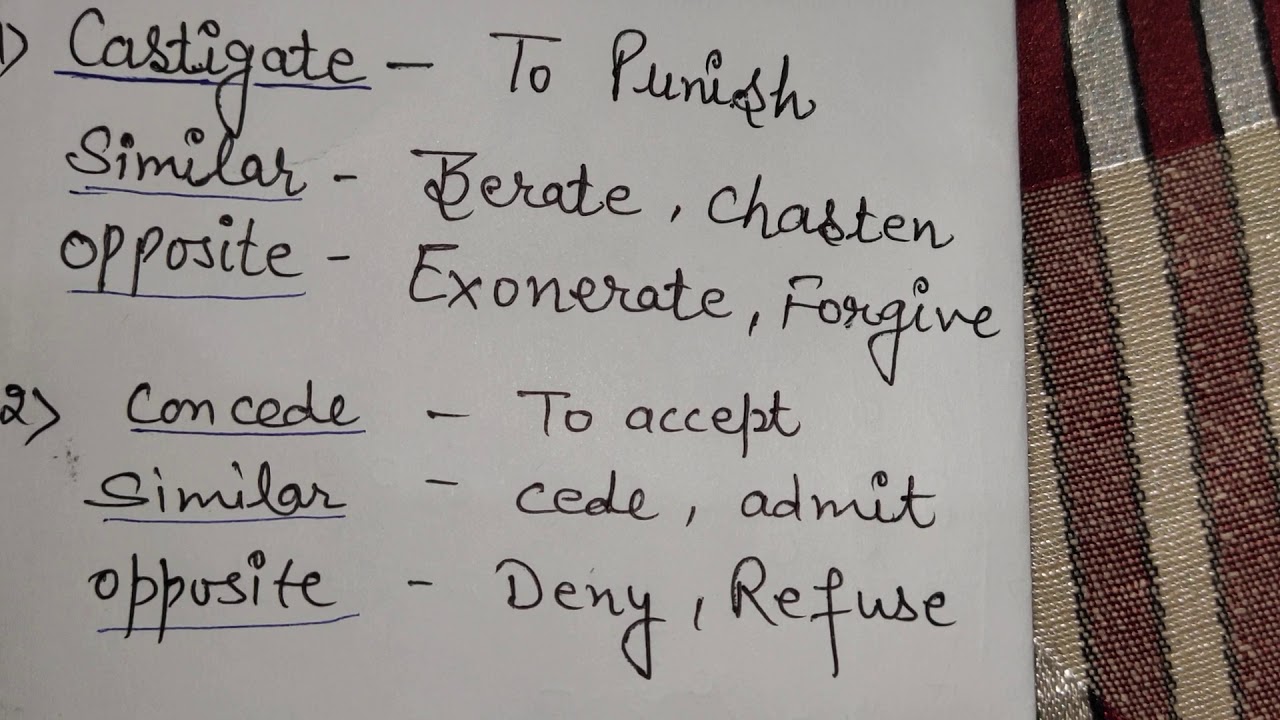 1) Castigate - To Punish
Similar - Berate, Chasten
opposite - Exonerate, Forgive
2) Concede - To accept
Similar - cede, admit
opposite - Deny, Refuse